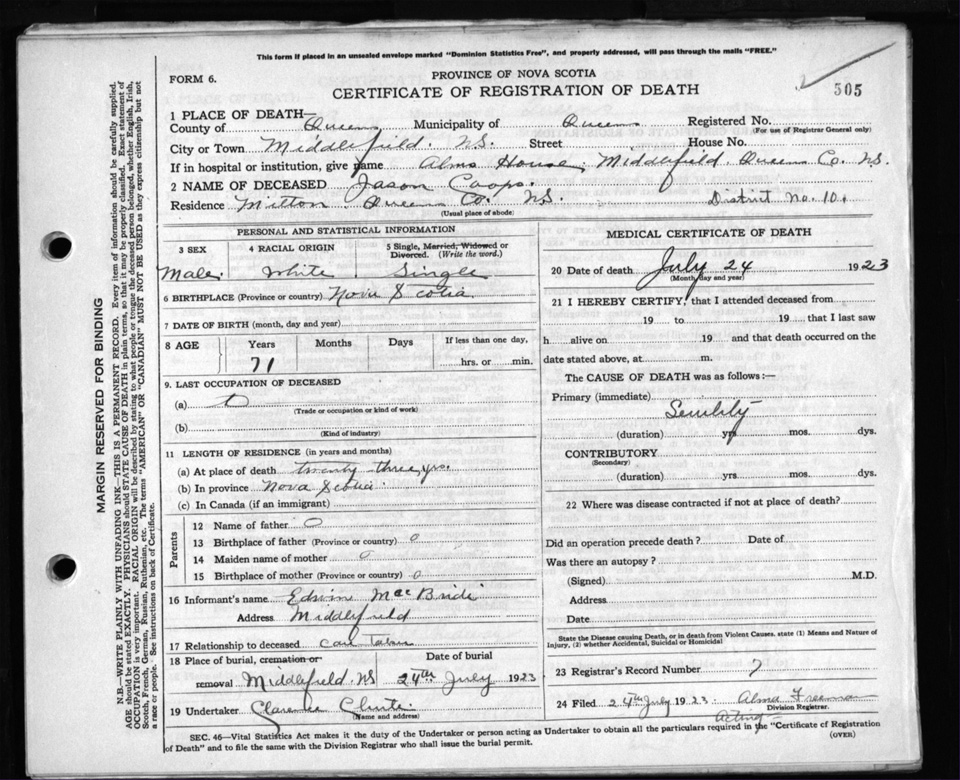 This form if placed in an unsealed envelope marked "Dominion Statistics Free", and properly addressed, will pass through the mails "FREE."
FORM 6.
PROVINCE OF NOVA SCOTIA
CERTIFICATE OF REGISTRATION OF DEATH
505
1 PLACE OF DEATH—
County of Queens Municipality of Queens Registered No.
(For use of Registrar General only)
City or Town Middlefield. N.S. Street House No.
If in hospital or institution, give name Alms House, Middlefield. Queens Co. N.S.
2 NAME OF DECEASED Jason Coops.
Residence Milton Queens Co. N.S. District No. 10.
(Usual place of abode)
PERSONAL AND STATISTICAL INFORMATION
3 SEX 4 RACIAL ORIGIN 5 Single, Married, Widowed or Divorced. (Write the word.)
Male. White. Single
6 BIRTHPLACE (Province or country) Nova Scotia.
7 DATE OF BIRTH (month, day and year)
8 AGE Years Months Days If less than one day,
71 hrs. or min.
9. LAST OCCUPATION OF DECEASED
(a)
(Trade or occupation or kind of work)
(b)
(Kind of industry)
11 LENGTH OF RESIDENCE (in years and months)
(a) At place of death twenty three yrs.
(b) In province Nova Scotia.
(c) In Canada (if an immigrant)
Parents
12 Name of father O
13 Birthplace of father (Province or country) O
14 Maiden name of mother O
15 Birthplace of mother (Province or country) O
16 Informant's name Edwin MacBride
Address Middlefield
17 Relationship to deceased
18 Place of burial, cremation or removal Middlefield. N.S
Date of burial 24th July 1923
19 Undertaker Clarence
(Name and address)
MEDICAL CERTIFICATE OF DEATH
20 Date of death July 24 1923
(Month, day and year)
21 I HEREBY CERTIFY, that I attended deceased from
19 to 19 that I last saw
h alive on 19 and that death occurred on the
date stated above, at m.
The CAUSE OF DEATH was as follows:—
Primary (immediate) Senility
(duration) yrs mos. dys.
CONTRIBUTORY
(Secondary)
(duration) yrs. mos. dys.
22 Where was disease contracted if not at place of death?
Did an operation precede death? Date of
Was there an autopsy?
(Signed) M.D.
Address
Date
State the Disease causing Death, or in death from Violent Causes. state (1) Means and Nature of
Injury, (2) whether Accidental, Suicidal or Homicidal
23 Registrar's Record Number 7
24 Filed 24th July 1923. Alma Freeman
Division Registrar.
Acting
SEC. 46—Vital Statistics Act makes it the duty of the Undertaker or person acting as Undertaker to obtain all the particulars required in the "Certificate of Registration
of Death" and to file the same with the Division Registrar who shall issue the burial permit.
(OVER)
MARGIN RESERVED FOR BINDING
N.B.—WRITE PLAINLY WITH UNFADING INK—THIS IS A PERMANENT RECORD. Every item of information should be carefully supplied.
AGE should be stated EXACTLY. PHYSICIANS should STATE CAUSE OF DEATH in plain terms, so that it may be properly classified. Exact statement of
OCCUPATION is very important. RACIAL ORIGIN will be described by stating to what people or tongue the deceased person belonged, whether English, Irish,
Scotch, French, German, Russian, Ruthenian, etc. The terms "AMERICAN" OR "CANADIAN" MUST NOT BE USED as they express citizenship but not
a race or people. See instructions on back of Certificate.